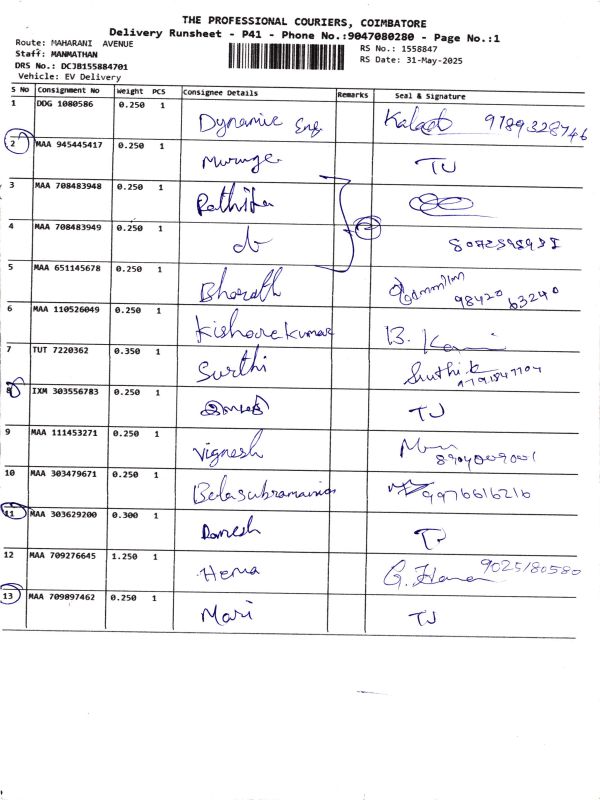 THE PROFESSIONAL COURIERS, COIMBATORE
Delivery Runsheet - P41 - Phone No.:9047080280 - Page No.:1
Route: MAHARANI AVENUE
RS No.: 1558847
Staff: MANMATHAN
RS Date: 31-May-2025
DRS No.: DCJB155884701
Vehicle: EV Delivery
S No Consignment No Weight PCS Consignee Details Remarks Seal & Signature
1 DDG 1080586 0.250 1 Dynamic Eng 9789328746
2 MAA 945445417 0.250 1 TJ
3 MAA 708483948 0.250 1 Rathika
4 MAA 708483949 0.250 1 do
5 MAA 651145678 0.250 1 Bharath 98420 63240
6 MAA 110526049 0.250 1 Kishorekumar B.
7 TUT 7220362 0.350 1 Surthi Sruthi
8 IXM 303556783 0.250 1 TJ
9 MAA 111453271 0.250 1 Vignesh
10 MAA 303479671 0.250 1 9976616216
11 MAA 303629200 0.300 1 TJ
12 MAA 709276645 1.250 1 Hema 9025180580
13 MAA 709897462 0.250 1 Mari TJ